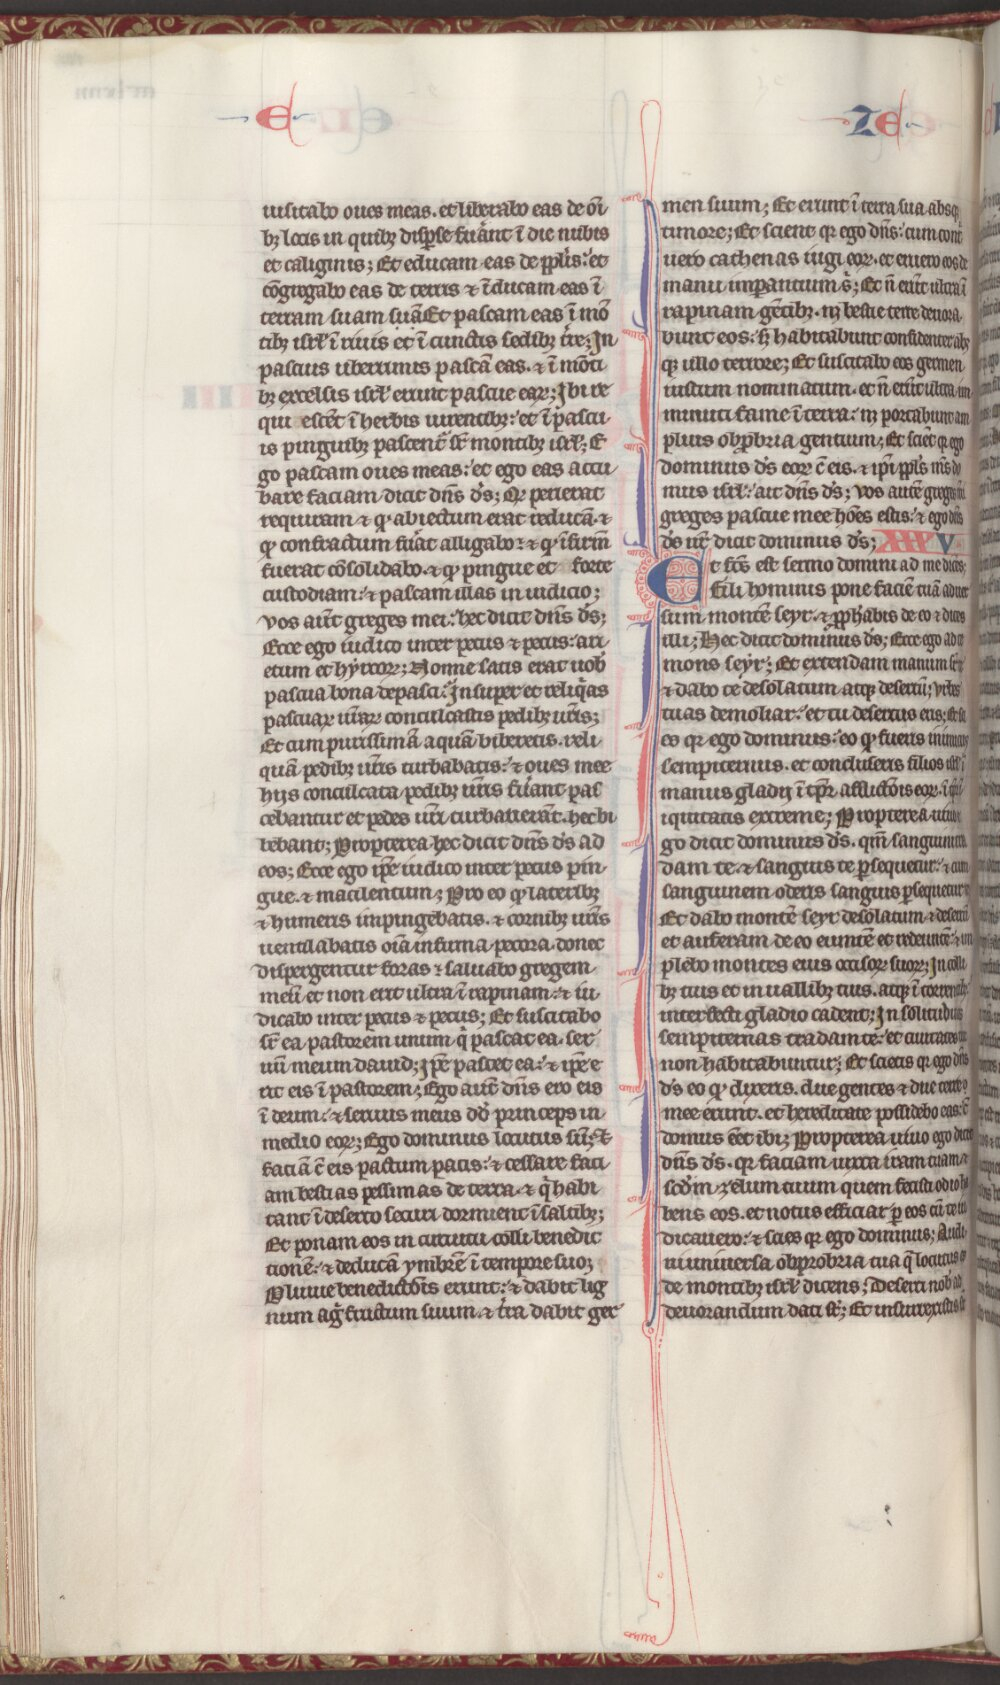 E ZE
uisitabo oues meas. et liberabo eas de oı̄
bꝫ locis in quibꝫ disꝑse fu̾ant ı̄ die nubis
et caliginis; Et educam eas de ppl̄is: et
cōgregabo eas de terris ⁊ ı̄ducam eas ı̄
terram suam suā Et pascam eas ı̄ mō
tibꝫ isrl̄ ı̄ riuis et ı̄ cunctis sedibꝫ tr̄e; In
pascuis uberrimis pascā eas. ⁊ ı̄ mōti
bꝫ excelsis isrl̄ erunt pascue eaꝝ; Ibi re
qui escēt ı̄ herbis uirentibꝫ: et ı̄ pascu
is pinguibꝫ pascent̄ sr̄ montibꝫ isrl̄; E
go pascam oues meas: et ego eas accu
bare faciam dicit dn̄s ds̄; Qꝛ perierat
requiram ⁊ qꝫ abiectum erat reducā. ⁊
qꝫ confractum fu̾at alligabo: ⁊ qꝫ ı̄firm̄
fuerat cōsolidabo. ⁊ qꝫ pingue et forte
custodiam: ⁊ pascam illas in iudicio;
Vos aūt greges mei: hec dicit dn̄s ds̄;
Ecce ego iudico inter pecus ⁊ pecus: ari
etum et hyrcoꝝ; Nonne satis erat uob̄
pascua bona depasci: Insuper et reliqͣas
pascuaꝝ ur̄aꝝ conculcastis pedibꝫ ur̄is;
Et cum purissimā aquā biberetis. reli
quā pedibꝫ ur̄is turbabatis: ⁊ oues mee
hijs conculcata pedibꝫ ur̄is fu̾ant pas
cebantur et pedes ur̄i turbauerāt. hec bi
bebant; Propterea hec dicit dn̄s ds̄ ad
eos; Ecce ego ip̄e iudico inter pecus pin
gue. ⁊ macilentum; Pro eo qꝫ lateribꝫ
⁊ humeris impingebatis. ⁊ cornibꝫ ur̄is
uentilabatis oīa infirma pecora. donec
dispergentur foras ⁊ saluabo gregem
meū et non erit ultra ı̄ rapinam: ⁊ iu
dicabo inter pecus ⁊ pecus; Et suscitabo
sr̄ ea pastorem unum qͥ pascat ea. ser
uū meum dauid; Ip̄e pascet ea: ⁊ ip̄e e
rit eis ı̄ pastorem; Ego aūt dn̄s ero eis
ı̄ deum: ⁊ seruus meus dd̄ princeps in
medio eoꝝ; Ego dominus locutus sū; Et
faciā c̄ eis pactum pacis: ⁊ cessare faci
am bestias pessimas de terra. ⁊ qͥ habi
tant ı̄ deserto securi dormient ı̄ saltibꝫ;
Et ponam eos in circuitu colli benedic
tionē: ⁊ deducā ymbrē ı̄ tempore suo;
Pluuie benedictōis erunt: ⁊ dabit lig
num ag̾ fructum suum. ⁊ tr̄a dabit ger
men suum; Et erunt ı̄ terra sua absqꝫ
timore; Et scient qꝛ ego dn̄s: cum cont̾
uero cathenas iugi eoꝝ. et eruero eos de
manu imꝑantium s̄; Et n̄ erūt ultra ı̄
rapinam gētibꝫ. nꝫ bestie terre deuora
bunt eos: sꝫ habitabunt confidenter abs
qꝫ ullo terrore; Et suscitabo eos germen
iustum nominatum. et n̄ erūt ultra im
minuti fame ı̄ terra: nꝫ portabunt am
plius obprobria gentium; Et sciēt qꝛ ego
dominus ds̄ eoꝝ c̄ eis. ⁊ ip̄i ppl̄s m̄s do
mus isrl̄: ait dn̄s ds̄; Vos autē greges mi
greges pascue mee hoēs estis: ⁊ ego dn̄s
ds̄ ur̄ dicit dominus ds̄; XXXV
Et fc̄s est sermo domini ad me dicēs;
Fili hominis pone faciē tuā aduer
sum montē seyr. ⁊ ꝓphabis de eo ⁊ dices
illi; Hec dicit dominus ds̄; Ecce ego ad te
mons seyr; Et extendam manum
⁊ dabo te desolatum atqꝫ desertū; Vrbes
tuas demoliar: et tu desertus eris; Et sci
es qꝛ ego dominus: eo qꝫ fueris inimicus
sempiternus. et concluseris filios isrl̄ ı̄
manus gladij ı̄ tp̄r afflictōis eoꝝ. ı̄ tp̄r
iquitatis extreme; Propterea uiuo
go dicit dominus ds̄. qm̄ sanguini
dam te. ⁊ sanguis te ꝑsequetur: ⁊ cum
sanguinem oderis sanguis ꝑsequetur
Et dabo montē seyr desolatum ⁊ desertū
et auferam de eo euntē et redeuntē: ⁊ im
plebo montes eius occisoꝝ suoꝝ; In colli
bꝫ tuis et in uallibꝫ tuis. atqꝫ ı̄ torrentibꝫ
interfecti gladio cadent; In solitudines
sempiternas tradam te: et ciuitates tue
non habitabuntur; Et scietis qꝛ ego dn̄s
ds̄ eo qꝫ dixeris. due gentes ⁊ due terre
mee erunt. et hereditate possidebo eas: c̄
domus eēt ibi; Propterea uiuo ego dicit
dn̄s ds̄. qꝛ faciam iuxta iram tuam ⁊
scd̄m zelum tuum quem fecisti odio ha
bens eos. et notus efficiar ꝑ eos cū te iu
dicauero: ⁊ scies qꝛ ego dominus; Audi
ui uniuersa obprobria tua q̄ locutus es
de montibꝫ isrl̄ dicens; Deserti nob̄ ad
deuorandum dati st̄; Et insurrexistis